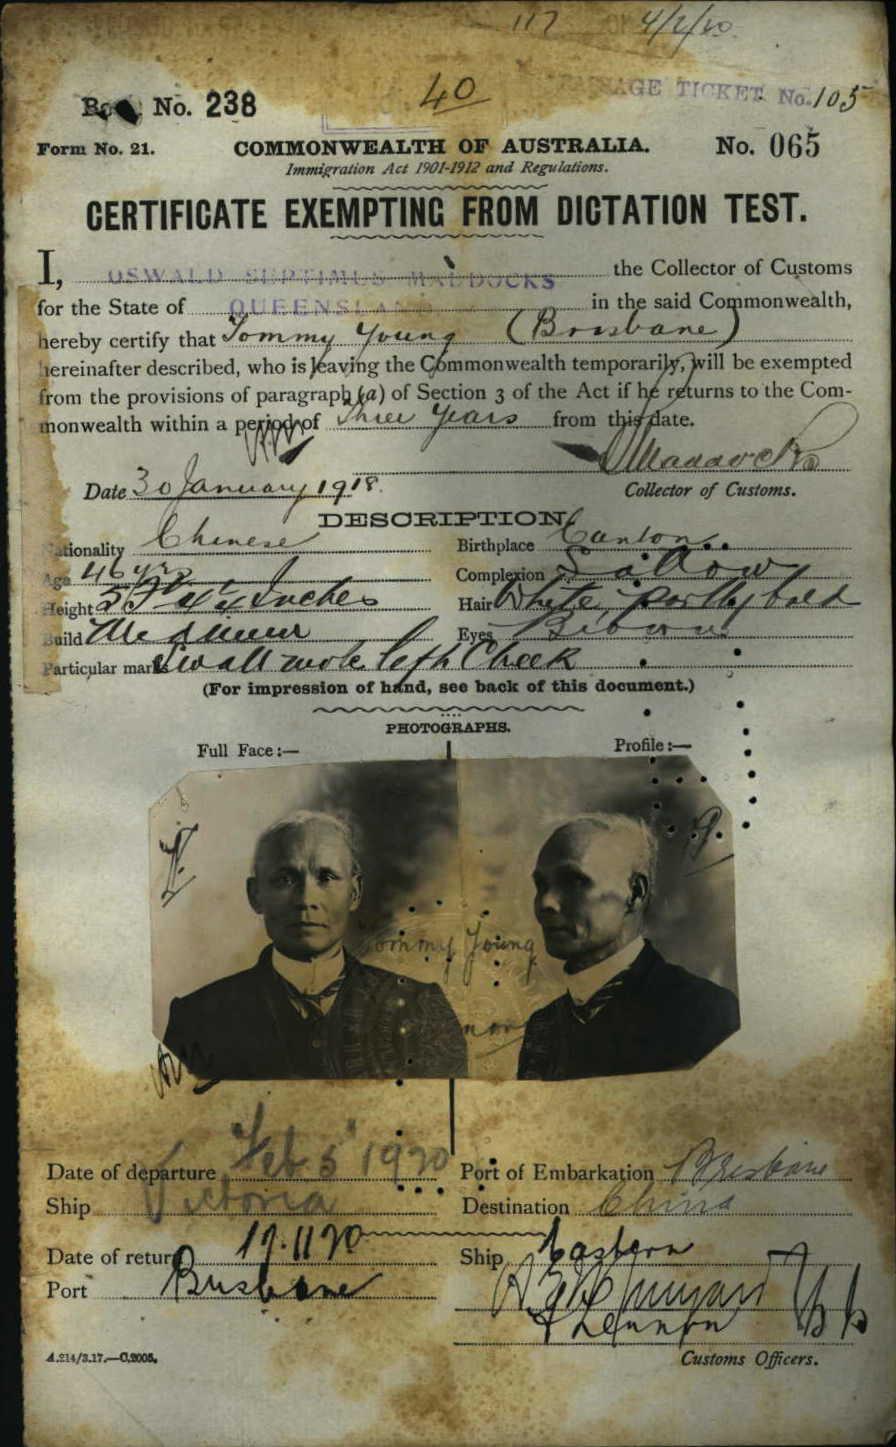 117 4/2/20
40
AGE TICKET No. 105
No. 238
Form No. 21. COMMONWEALTH OF AUSTRALIA. No. 065
Immigration Act 1901-1912 and Regulations.
CERTIFICATE EXEMPTING FROM DICTATION TEST.
I, OSWALD SEPTIMUS MADDOCKS the Collector of Customs
for the State of QUEENSLAND in the said Commonwealth,
hereby certify that Tommy Young (Brisbane)
hereinafter described, who is leaving the Commonwealth temporarily, will be exempted
from the provisions of paragraph (a) of Section 3 of the Act if he returns to the Com-
monwealth within a period of Three Years from this date.
Maddocks
Date 30 January 1918. Collector of Customs.
DESCRIPTION.
Nationality Chinese Birthplace Canton
Age 46 yrs Complexion Sallow
Height 5 Ft 4¼ Inches Hair White, partly bald
Build Medium Eyes Brown
Particular marks Small mole left Cheek
(For impression of hand, see back of this document.)
PHOTOGRAPHS.
Full Face:— Profile:—
Tommy Young
Date of departure Feb 5 1920 Port of Embarkation Brisbane
Ship Victoria Destination China
Date of return 19.11.20 Ship Eastern
Port Brisbane
A.214/3.17.—C.2005. Customs Officers.